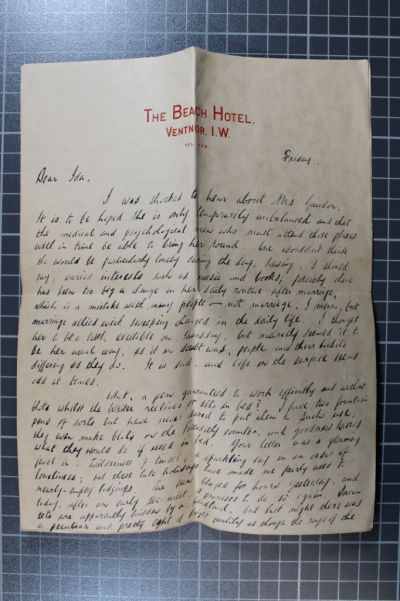 THE BEACH HOTEL,
VENTNOR. I.W.
Friday.
Dear Ida,
I was shocked to hear about Mrs
It is to be hoped she is only temporarily unbalanced and that
the medical and psychological men who must attend these places
will in time be able to bring her round. One wouldn't think
she would be particularly lonely during the day, having, I should
say, varied interests such as music and books; possibly there
has been too big a change in her daily routine after marriage,
which is a mistake with many people — not marriage, I mean, but
marriage allied with sweeping changes in the daily life. I thought
her to be a little excitable on Thursday, but naturally deemed it to
be her usual way, as it no doubt was, people and their habits
differing as they do. It is sad - and life on the surface seems
odd at times.
What, a pen guaranteed to work efficiently and without
blots whilst the writer reclines or sits in bed? I have two fountain
pens of sorts but have never dared to put them to such use;
they even make blots on the and goodness knows
what they would do if used in bed. Your letter was a
in a wilderness of a sparkling in an of
loneliness; but these late have made me fairly used to
nearly-empty lodgings. The sun blazed for hours yesterday, and
today, after an early sea-mist, promises to do so again.
are apparently hidden by a but last night there was
a peculiar and pretty light of quality as though the rays of the